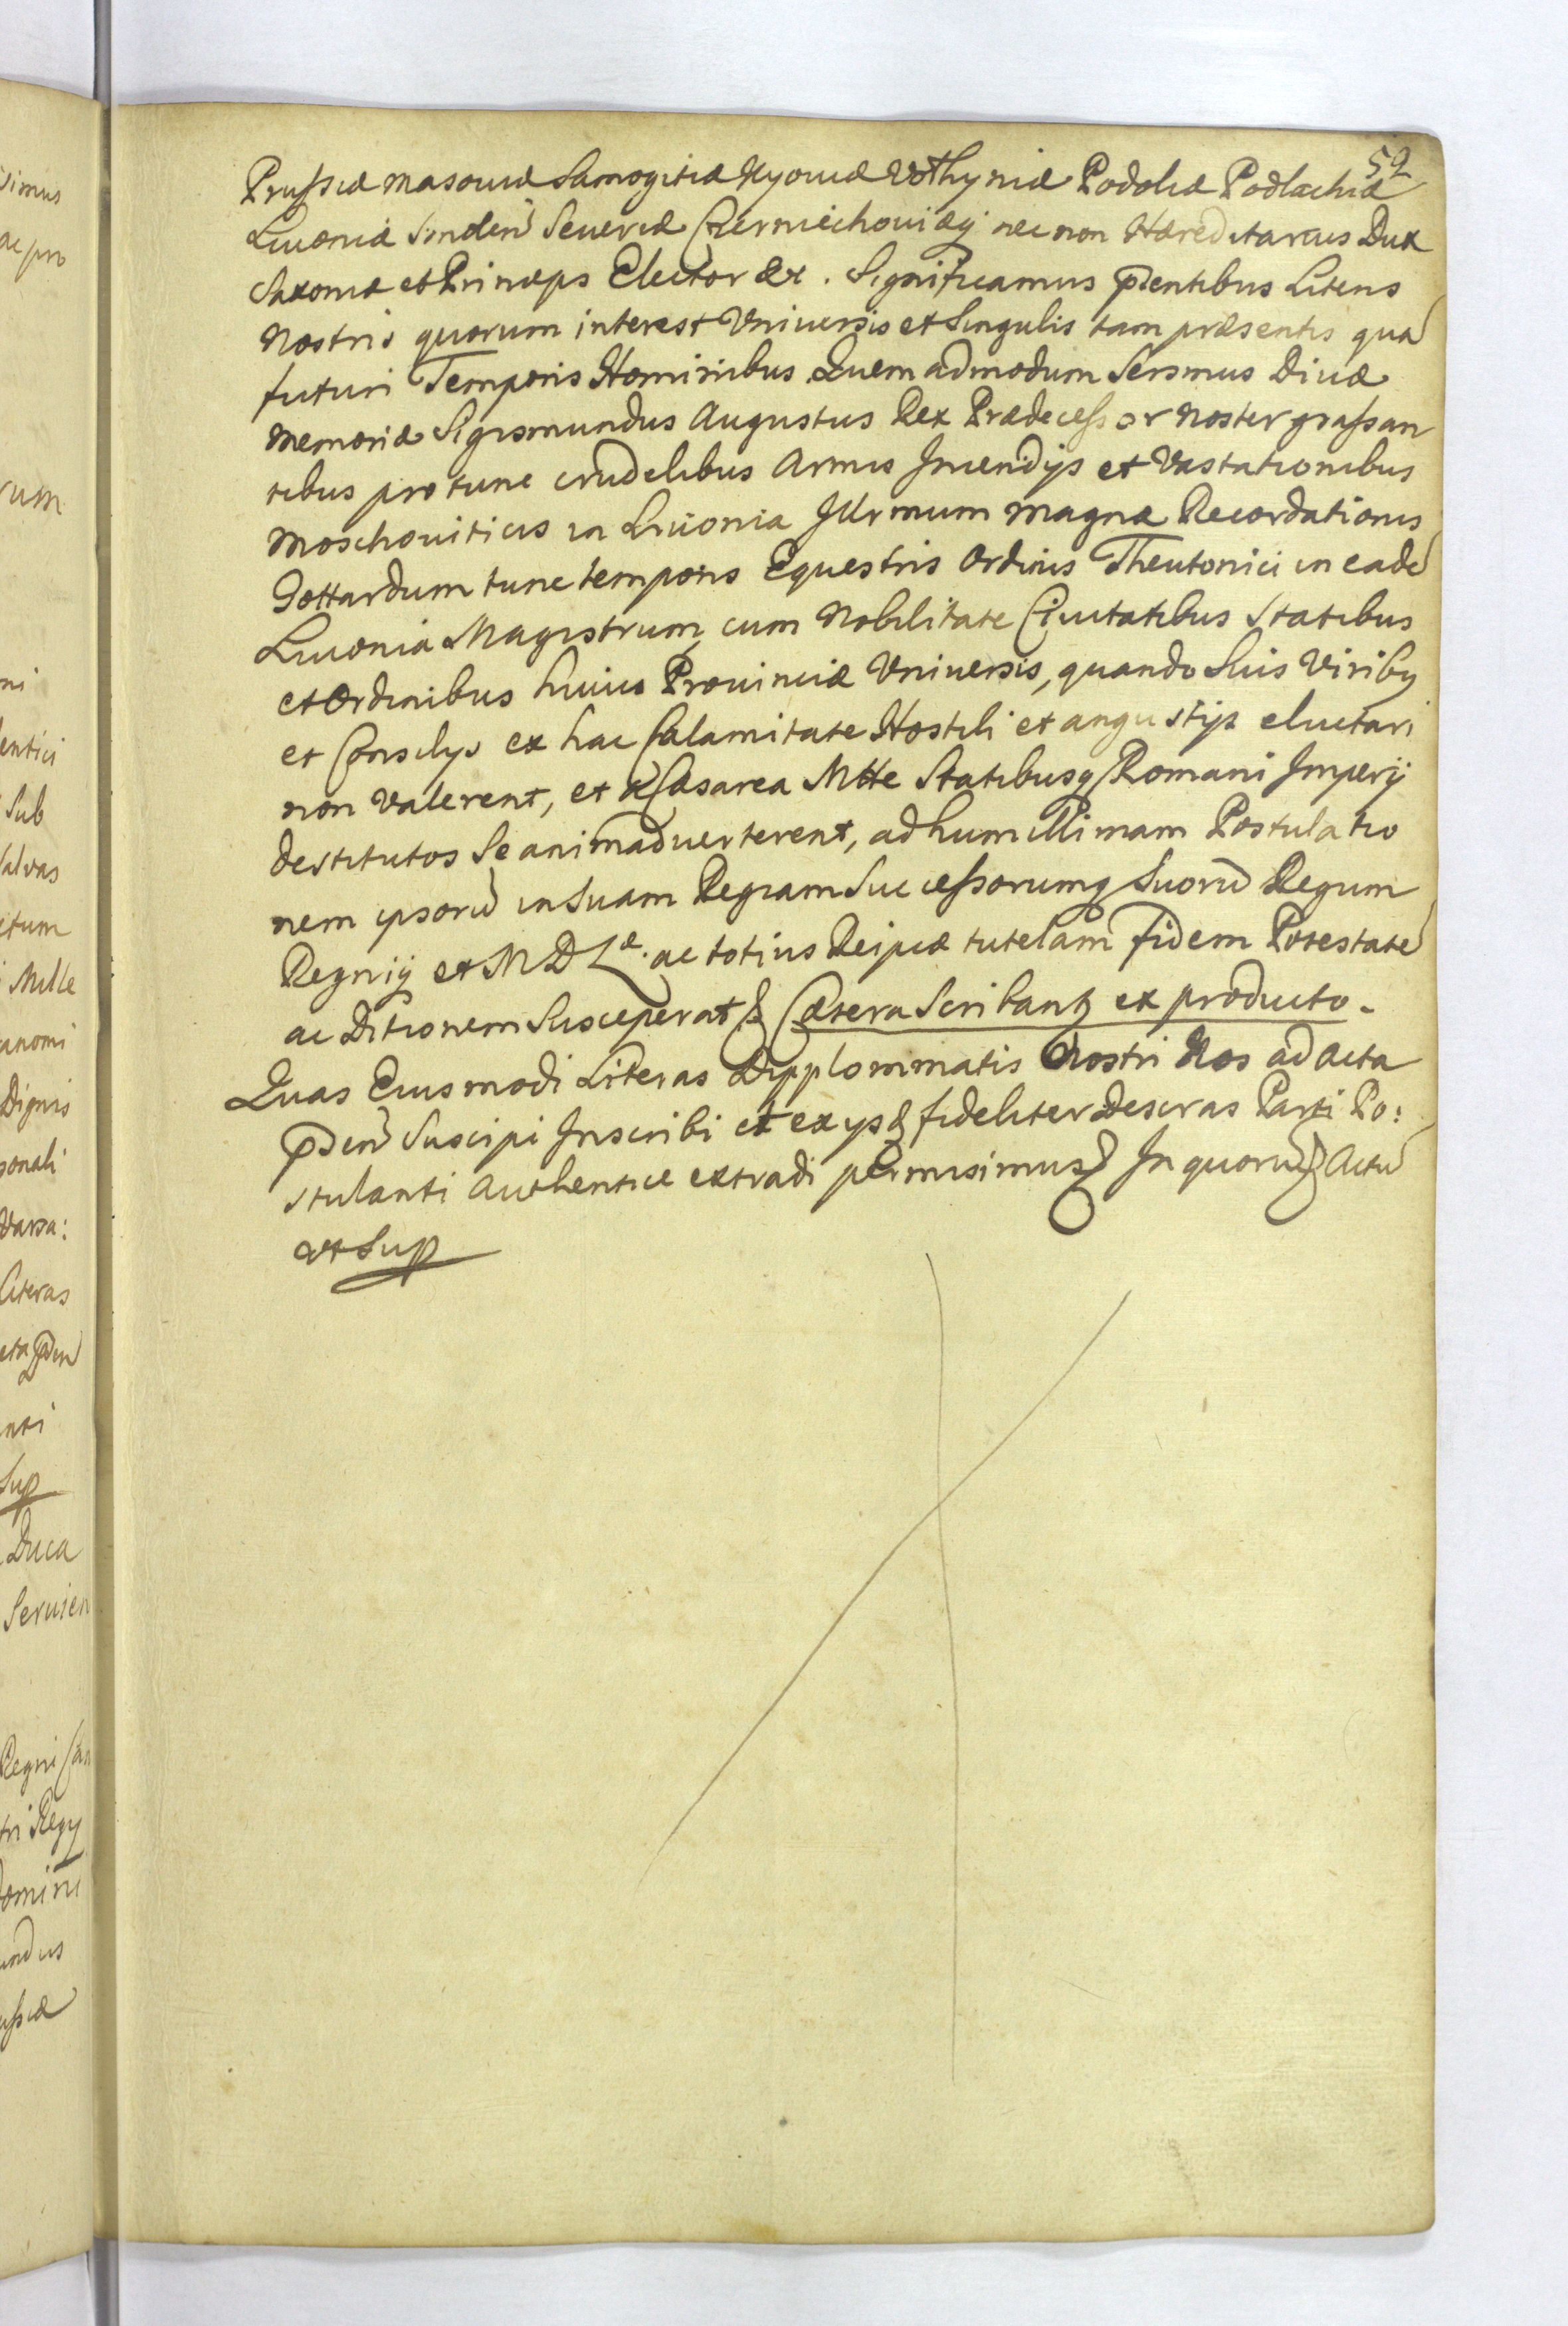 52
Prussiæ Masoviæ Samogitiæ Kyoviæ Vothyniæ Podoliæ Podlachiæ
Livoniæ Smolen Severiæ Czerniechoviæq nec non Hæreditarius Dux
Saxoniæ et Princeps Elector &c. Significamus pntibus Literis
Nostris quorum interest Vniversis et Singulis tam præsentis qua
futuri Temporis Hominibus Quemadmodum Sersmus Divæ
Memoriæ Sigismundus Augustus Rex Prædecessor Noster grassan
tibus pro tunc crudelibus Armis Incendijs et Vastationibus
Moschoviticis in Livonia Illrmum Magnæ Recordationis
Gottardum tunc temporis Equestris Ordinis Theutonici in eade
Livonia Magistrum cum Nobilitate Civitatibus Statibus
et Ordinibus huius Provinciæ Vniversis, quando Suis Viribq
et Consilys ex hac Calamitate Hostili et angustijs eluctari
non Valerent, et a Cæsarea Mtte Statibusq Romani Imperij
destitutos Se animadverterent, ad humillimam Postulatio
nem ipsoru in Suam Regiam Successorumq Suoru Regum
Regnij et M D L æ. ac totius Reipcæ tutelam fidem Potestate
ac Ditionem Susceperat & Cætera Scribantq ex producto.
Quas Eiusmodi Literas Dipplommatis Nostri Nos ad Acta
pden Suscipi Inscribi et ex ys & fideliter Descras Parti Po:
stulanti Authentice extradi permisimus & In quoru & Actu
vt Sup